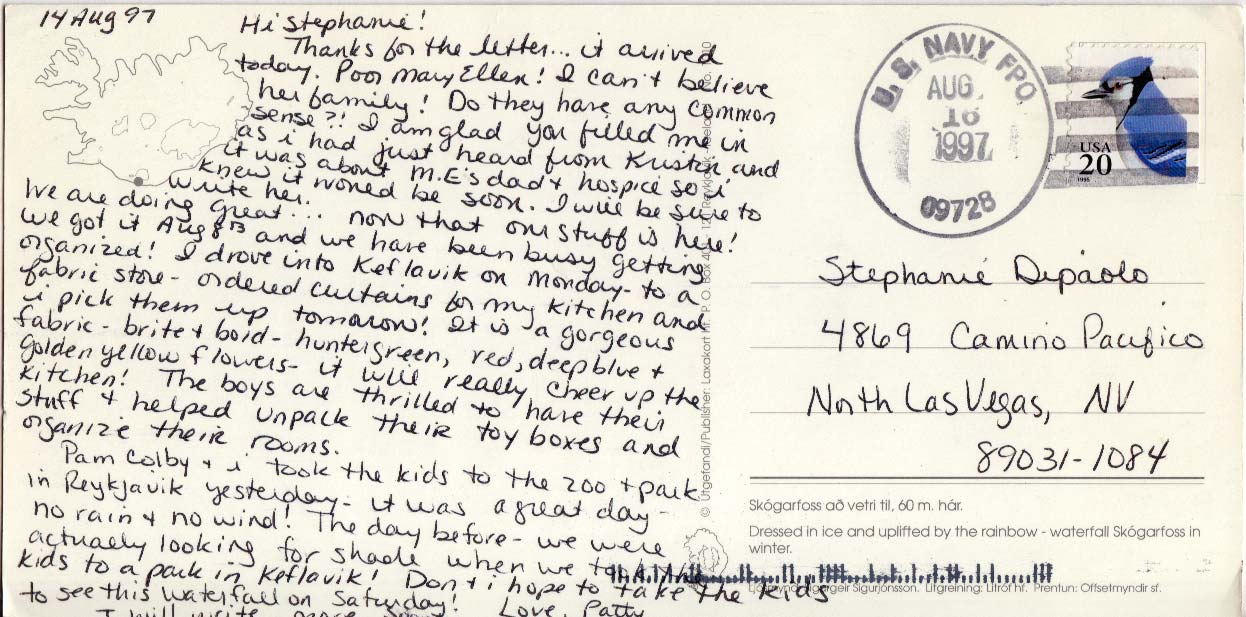 14 Aug 97
Hi Stephanie!
Thanks for the letter... it arrived
today. Poor Mary Ellen! I can't believe
her family! Do they have any common
sense?! I am glad you filled me in
as i had just heard from Kristen and
it was about M.E's dad + hospice so i
knew it would be soon. I will be sure to
write her.
We are doing great... now that our stuff is here!
We got it Aug 8th and we have been busy getting
organized! I drove into Keflavik on Monday- to a
fabric store- ordered curtains for my kitchen and
i pick them up tomorow! It is a gorgeous
fabric- brite + bold- huntergreen, red, deep blue +
golden yellow flowers- it will really cheer up the
kitchen! The boys are thrilled to have their
stuff + helped unpack their toy boxes and
organize their rooms.
Pam Colby + i took the kids to the zoo + park
in Reykjavik yesterday- it was a great day-
no rain + no wind! The day before- we were
actually looking for shade when we took the
kids to a park in Keflavik! Don + i hope to take the kids
to see this waterfall on Saturday! Love, Patty
I will write more
© Útgefandi/Publisher: Laxakort hf. P.O. Box
U.S. NAVY FPO
AUG.
16
1997
09728
USA
20
1996
Stephanie Dipaolo
4869 Camino Pacifico
North Las Vegas, NV
89031-1084
Skógarfoss að vetri til, 60 m. hár.
Dressed in ice and uplifted by the rainbow - waterfall Skógarfoss in
winter.
Sigurjónsson. Litgreining: Litróf hf. Prentun: Offsetmyndir sf.